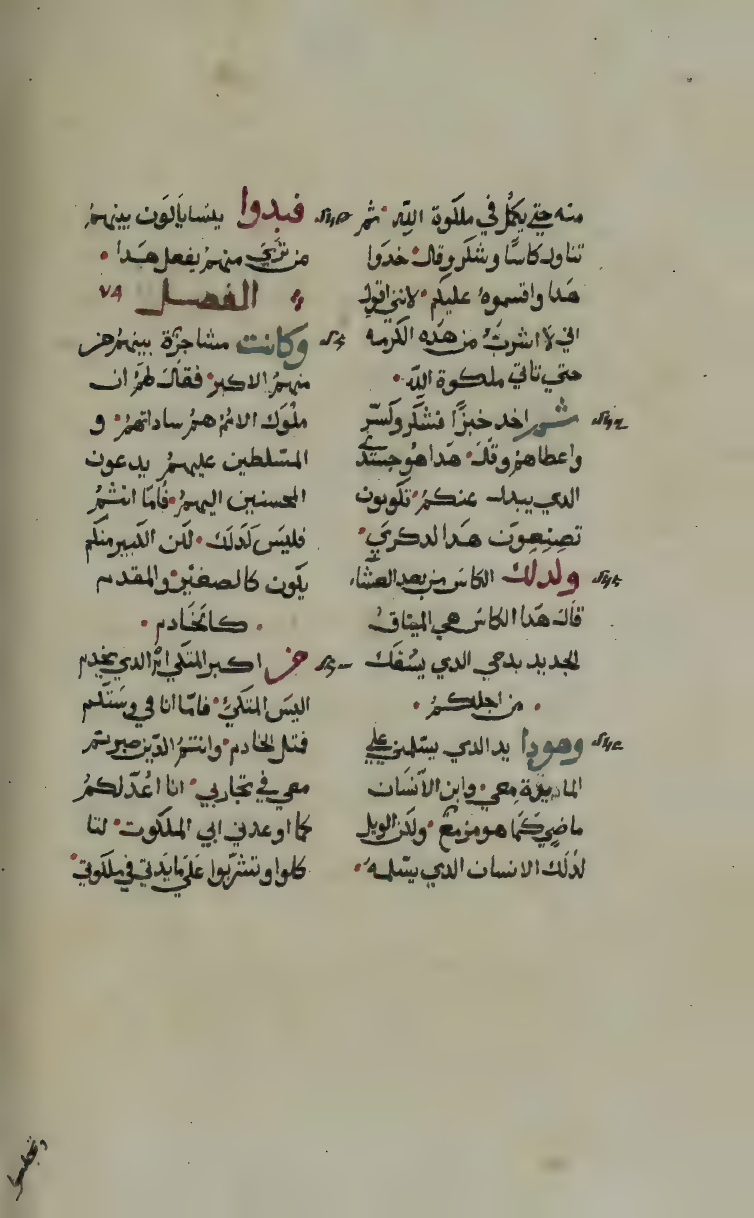 منه حتي يكمل في ملكوة الله ثم
تناول كاسًا وشكر وقال خدوا
هدا واقسموه عليكم لانني اقول
اني لا اشرب من هده الكرمه
حتي تاتي ملكوة الله
ثم اخد خبزًا فشكر وكسر
واعطاهم وقال هدا هو جسدي
الدي يبدل عنكم تكونون
تصنعون هدا لدكري
ولدلك الكاس من بعد العشاء
قال هدا الكاس هي الميتاق
الجديد بدمي الدي يسفك
من اجلكم
وهودا يد الدي يسلمني علي
المايدة معي وابن الانسان
ماضي كما هو مزمع ولكن الويل
لدلك الانسان الدي يسلمه
فبدوا يتسايلون بينهم
من تري منهم يفعل هدا
الفصل ٧٨
وكانت مشاجرة بينهم من
منهم الاكبر فقال لهم ان
ملوك الامم هم ساداتهم و
المسلطين عليهم يدعون
المحسنين اليهم فاما انتم
فليس كدلك لكن الكبير منكم
يكون كالصغير والمقدم
كالخادم
من اكبر المتكي ام الدي يخدم
اليس المتكي فاما انا في وسكم
فتل الخادم وانتم الدين صبرتم
معي في تجاربي انا اعد لكم
كما اوعدني ابي الملكوت لتا
كلوا وتشربوا علي مايدتي في ملكوتي
وتجلسوا